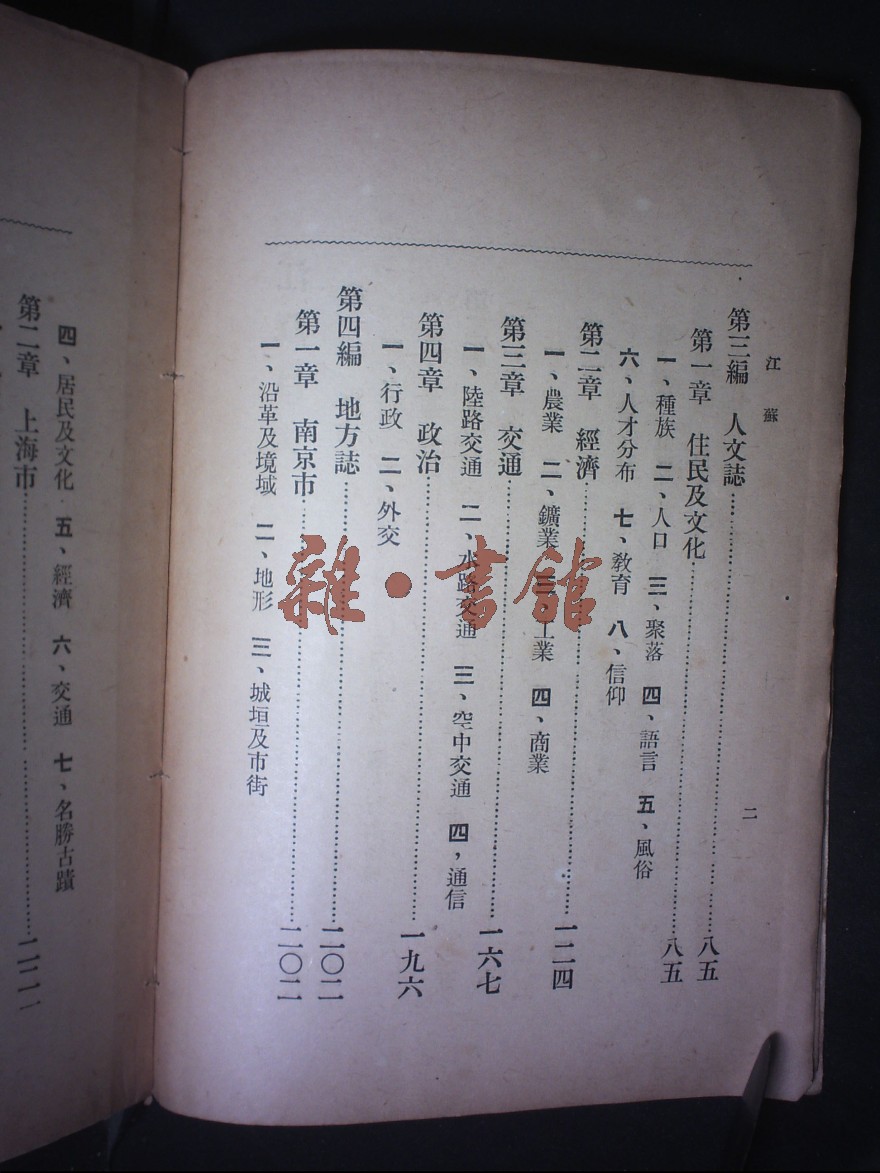 江蘇
二
第三編　人文誌……八五
第一章　住民及文化……八五
一、種族　二、人口　三、聚落　四、語言　五、風俗
六、人才分布　七、教育　八、信仰
第二章　經濟……一二四
一、農業　二、鑛業　三、工業　四、商業
第三章　交通……一六七
一、陸路交通　二、水路交通　三、空中交通　四，通信
第四章　政治……一九六
一、行政　二、外交
第四編　地方誌……二〇二
第一章　南京市……二〇二
一、沿革及境域　二、地形　三、城垣及市街
四、居民及文化　五、經濟　六、交通　七、名勝古蹟
第二章　上海市……
雜·書館